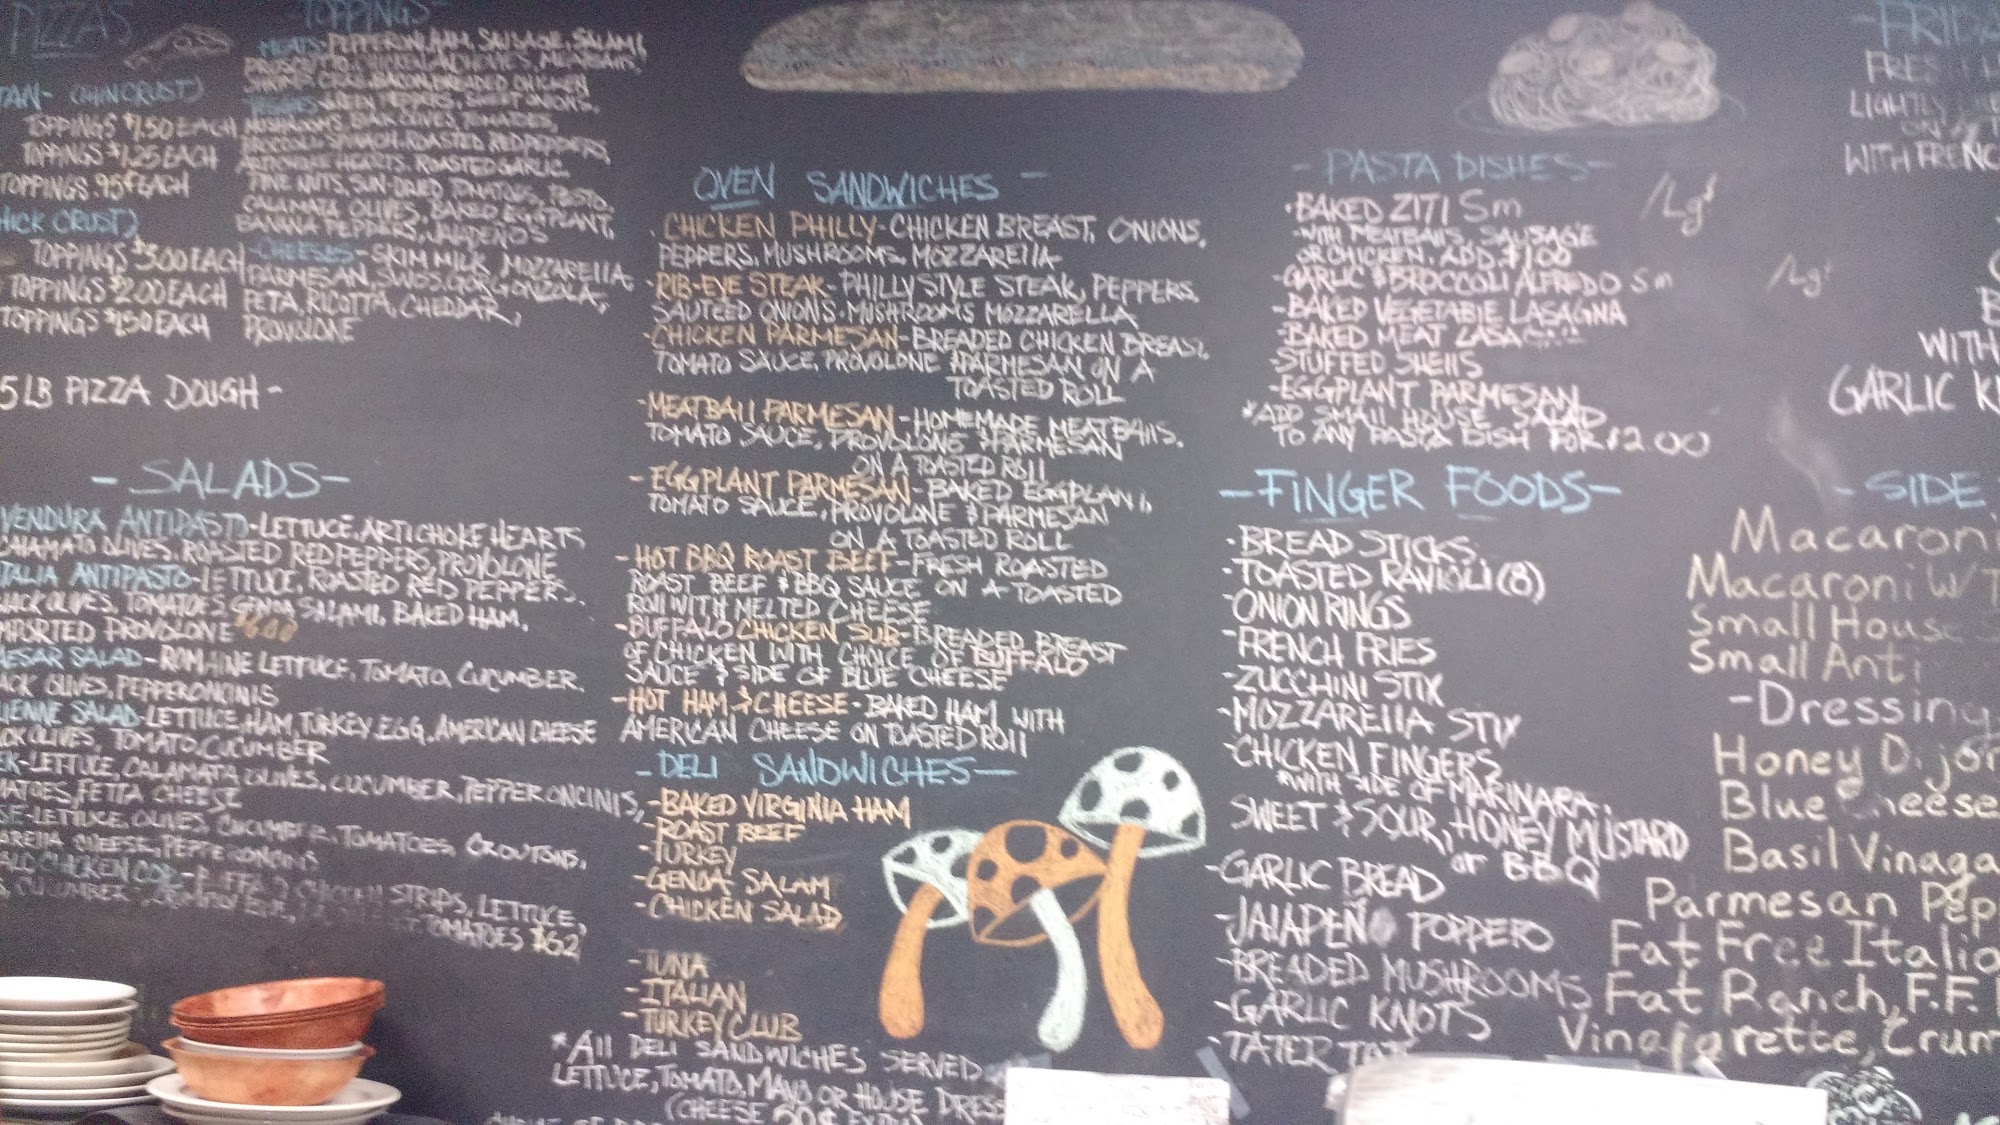 PIZZAS
(THIN CRUST)
TOPPINGS $1.50 EACH
TOPPINGS $1.25 EACH
TOPPINGS .95¢ EACH
HICK CRUST)
TOPPINGS $3.00 EACH
TOPPINGS $2.00 EACH
TOPPINGS $1.50 EACH
5 LB PIZZA DOUGH -
- TOPPINGS -
MEATS - PEPPERONI, HAM, SAUSAGE, SALAMI,
PROSCIUTTO, CHICKEN, ANCHOVIES, MEATBALLS,
BREADED CHICKEN
VEGGIES - GREEN PEPPERS, SWEET ONIONS,
MUSHROOMS, BLACK OLIVES, TOMATOES,
BROCCOLI, SPINACH, ROASTED RED PEPPERS,
ARTICHOKE HEARTS, ROASTED GARLIC
PINE NUTS, SUN-DRIED TOMATOES, PESTO,
CALAMATA OLIVES, BAKED EGGPLANT,
BANANA PEPPERS, JALAPENOS
- CHEESES - SKIM MILK, MOZZARELLA
PARMESAN, SWISS, GORGONZOLA,
FETA, RICOTTA, CHEDDAR,
PROVOLONE
- SALADS -
VENDURA ANTIPASTO - LETTUCE, ARTICHOKE HEARTS,
CALAMATO OLIVES, ROASTED RED PEPPERS, PROVOLONE
TALIA ANTIPASTO - LETTUCE, ROASTED RED PEPPERS,
BLACK OLIVES, TOMATOES, GENOA SALAMI, BAKED HAM,
IMPORTED PROVOLONE
AESAR SALAD - ROMAINE LETTUCE, TOMATO, CUCUMBER,
ACK OLIVES, PEPPERONCINIS
LIENNE SALAD - LETTUCE, HAM, TURKEY, EGG, AMERICAN CHEESE
CK OLIVES, TOMATO, CUCUMBER
EK - LETTUCE, CALAMATA OLIVES, CUCUMBER, PEPPERONCINIS,
MATOES, FETTA CHEESE
SE - LETTUCE, OLIVES, CUCUMBER, TOMATOES, CROUTONS,
ARELLA CHEESE, PEPPERONCINIS
CHICKEN STRIPS, LETTUCE,
TOMATOES $6.2
OVEN SANDWICHES -
- CHICKEN PHILLY - CHICKEN BREAST, ONIONS,
PEPPERS, MUSHROOMS, MOZZARELLA
RIB-EYE STEAK - PHILLY STYLE STEAK, PEPPERS,
SAUTEED ONIONS, MUSHROOMS MOZZARELLA
- CHICKEN PARMESAN - BREADED CHICKEN BREAST
TOMATO SAUCE, PROVOLONE & PARMESAN ON A
TOASTED ROLL
- MEATBALL PARMESAN - HOMEMADE MEATBALLS,
TOMATO SAUCE, PROVOLONE & PARMESAN
ON A TOASTED ROLL
- EGGPLANT PARMESAN - BAKED EGGPLANT,
TOMATO SAUCE, PROVOLONE & PARMESAN
ON A TOASTED ROLL
- HOT BBQ ROAST BEEF - FRESH ROASTED
ROAST BEEF & BBQ SAUCE ON A TOASTED
ROLL WITH MELTED CHEESE
- BUFFALO CHICKEN SUB - BREADED BREAST
OF CHICKEN WITH CHOICE OF BUFFALO
SAUCE & SIDE OF BLUE CHEESE
- HOT HAM & CHEESE - BAKED HAM WITH
AMERICAN CHEESE ON TOASTED ROLL
- DELI SANDWICHES -
- BAKED VIRGINIA HAM
- ROAST BEEF
- TURKEY
- GENOA SALAMI
- CHICKEN SALAD
- TUNA
- ITALIAN
- TURKEY CLUB
*All DELI SANDWICHES SERVED
LETTUCE, TOMATO, MAYO OR HOUSE DRESS
(CHEESE 50¢ EXTRA)
- PASTA DISHES -
- BAKED ZITI Sm /Lg
- WITH MEATBALLS, SAUSAGE
OR CHICKEN, ADD $1.00
- GARLIC & BROCCOLI ALFREDO Sm /Lg
- BAKED VEGETABLE LASAGNA
- BAKED MEAT LASAGNA
- STUFFED SHELLS
- EGGPLANT PARMESAN
*ADD SMALL HOUSE SALAD
TO ANY PASTA DISH FOR $2.00
- FINGER FOODS -
- BREAD STICKS
- TOASTED RAVIOLI (8)
- ONION RINGS
- FRENCH FRIES
- ZUCCHINI STIX
- MOZZARELLA STIX
- CHICKEN FINGERS
*WITH SIDE OF MARINARA,
SWEET & SOUR, HONEY MUSTARD
or BBQ
- GARLIC BREAD
- JALAPENO POPPERS
- BREADED MUSHROOMS
- GARLIC KNOTS
- TATER TOTS
- FRIDA
FRESH
LIGHTLY
ON A
WITH FRENC
WITH
GARLIC K
- SIDE
Macaroni
Macaroni W/
Small House
Small Anti
- Dressing
Honey Dijon
Blue Cheese
Basil Vinaga
Parmesan Pep
Fat Free Italia
Fat Ranch, F.F.
Vinaigrette, Crum